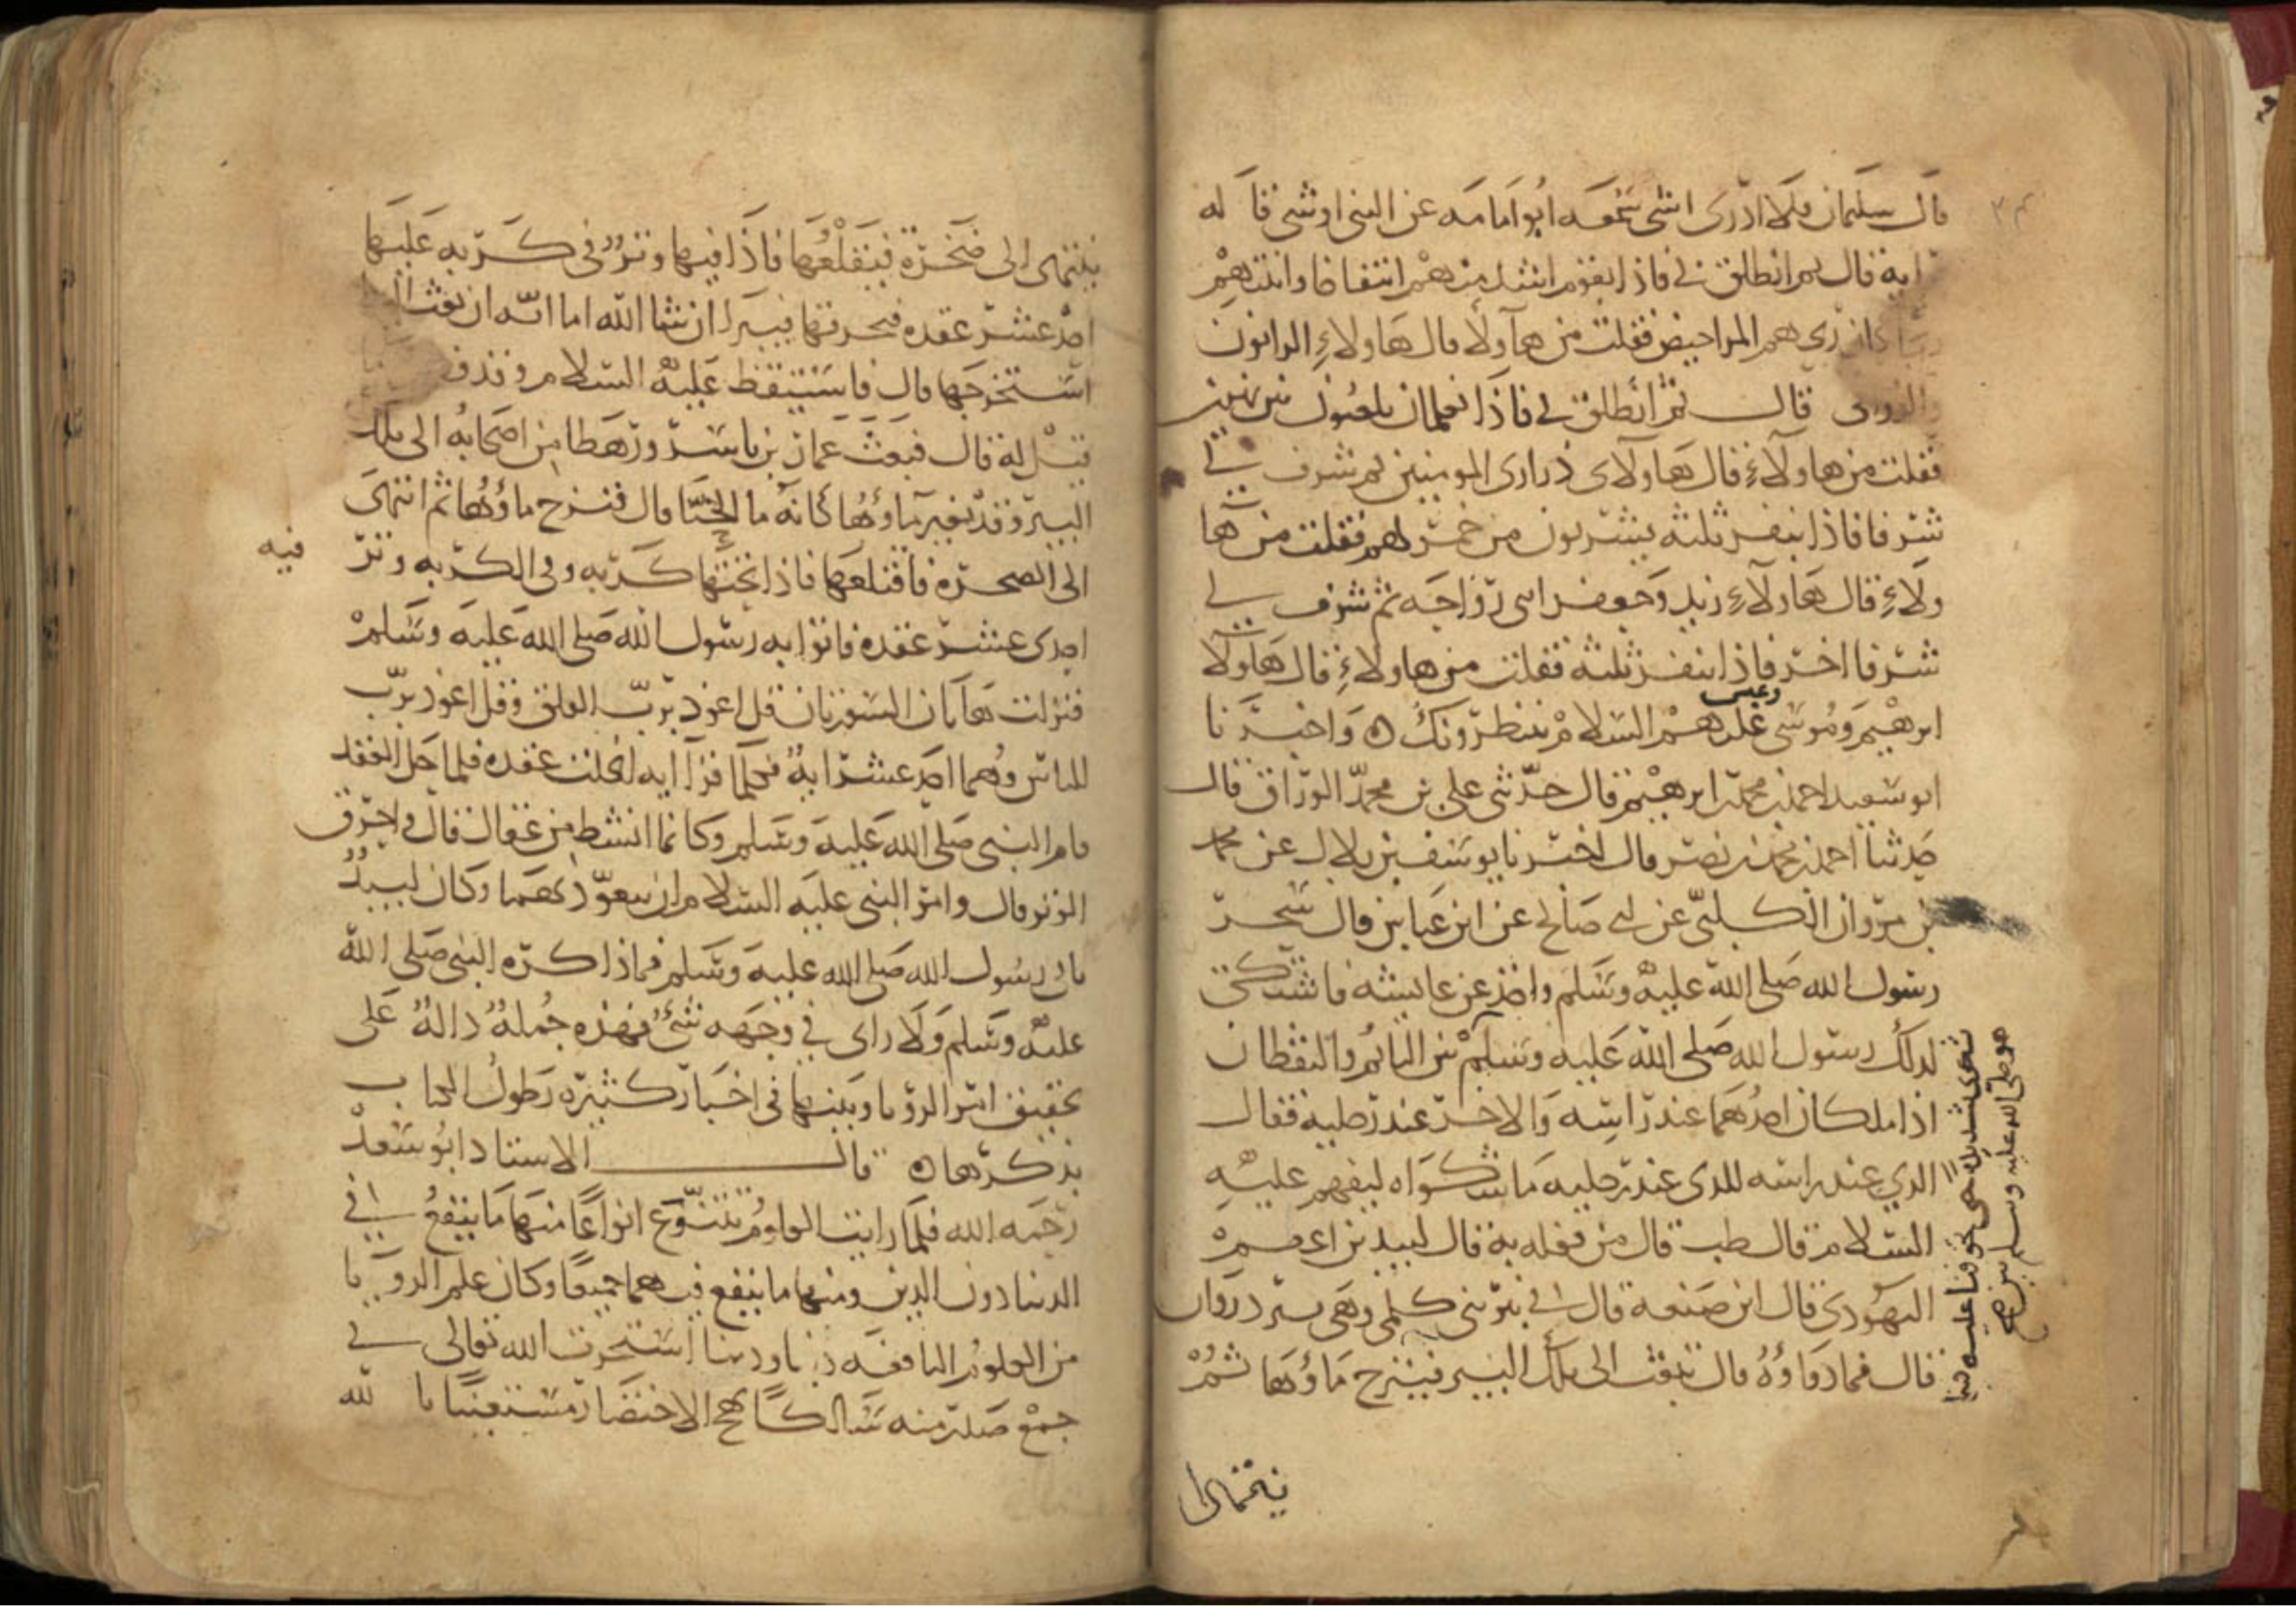 قال سليمان فلا ادرى اشى سمعه ابوامامه عن النبى اوشى قاله
ايه قال ثم انطلق بى فاذا بقوم اشد شى انتفاخا وانتنهم
كان ريحهم المراحيض فقلت من هآولا قال هاولاءِ الزانون
والزوانى قال ثم انطلق بى فاذا بغلمان يلعبون بين نهرين
فقلت من هاولاءِ قال هاولاى ذرارى المومنين ثم شرف بى
شرفا فاذا بنفر ثلثه يشربون من خمر لهم فقلت من ها
ولاءِ قال هاولاءِ زيد وجعفر وابن رواحه ثم شرف بى
شرفا اخر فاذا بنفر ثلثه فقلت من هاولاءِ قال هاولا
ابرهيم وموسى وعيسى عليهم السلام ينتظرونك ه واخبرنا
ابو سعيد احمد بن محمد بن ابرهيم قال حدثنى على بن محمد الوراق قال
حدثنا احمد بن محمد بن نصر قال اخبرنا يوسف بن بلال عن محمد
بن مروان الكلبى عن ابى صالح عن ابن عباس قال سحر
رسول الله صلى الله عليه وسلم واخذ عن عايشه فاشتكى
لذلك رسول الله صلى الله عليه وسلم بين النايم واليقظان
اذا ملكان احدهما عند راسه والاخر عند رجليه فقال
الذي عند راسه للذى عند رجليه ما شكواه ليفهم عليه
السلام قال طب قال من فعله به قال لبيد بن اعصم
اليهودى قال اين صنعه قال فى بئر بنى كلمى وهى بير دروان
قال فما دواؤه قال يبعث الى تلك البير فينزح ماؤها ثم
شكوى شديده حتى خوفنا عليه فبينا
هو صلى الله عليه وسلم بين
ينتهى الى
ينتهى الى صخرة فيقلعها فاذا فيها وتر فى كربه عليها
احد عشر عقده فيحرقها فيبرا ان شا الله اما انه ان بعث اليها
استخرجها قال فاستيقظ عليه السلام وقد
قيل له قال فبعث عمار بن ياسر ورهطا من اصحابه الى تلك
البير وقد تغير ماؤها كانه ما الحنا قال فنزح ماؤها ثم انتهى
الى الصخره فاقتلعها فاذا تحتها كربه وفى الكربه وتر فيه
احدى عشر عقده فاتوا به رسول الله صلى الله عليه وسلم
فنزلت هاتان السورتان قل اعوذ برب الفلق وقل اعوذ برب
الناس وهما احد عشر ايه فكلما قرا ايه انحلت عقده فلما حل العقد
قام النبى صلى الله عليه وسلم وكانما انشط من عقال قال واحرق
الوتر قال وامر النبى عليه السلام ان يتعوذ بهما وكان لبيد
ياتى رسول الله صلى الله عليه وسلم فما ذاكره النبى صلى الله
عليه وسلم ولا راى في وجهه شئ فهذه جملة دالة على
تحقيق امر الرؤيا وبينهما فى اخبار كثيره يطول الكتاب
بذكرها ه قال الاستاد ابو سعد
رحمه الله فلما رايت العلوم تتنوع انواعا منها ما ينفع فى
الدنيا دون الدين ومنها ما ينفع فيهما جميعا وكان علم الرويا
من العلوم النافعه دنيا ودينا استخرت الله تعالى فى
جمع صدر منه سالكا نهج الاختصار مستعينا بالله